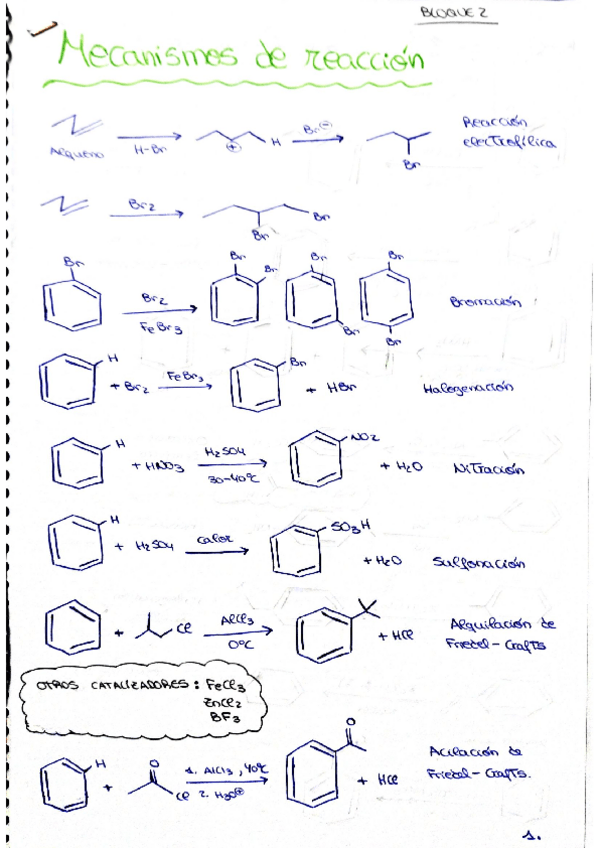 BLOQUE 2
Mecanismos de reacción
Alqueno H-Br H Br⊖ Br Reacción electrofílica
⊕
Br2 Br Br
Br Br2 FeBr3 Br Br Br Br Br Br Bromación
H + Br2 FeBr3 Br + HBr Halogenación
H + HNO3 H2SO4 30-40ºC NO2 + H2O Nitración
H + H2SO4 calor SO3H + H2O Sulfonación
+ Cl AlCl3 0ºC + HCl Alquilación de Friedel-Crafts
OTROS CATALIZADORES: FeCl3
ZnCl2
BF3
H + O Cl 1. AlCl3, 40ºC 2. H3O⊕ O + HCl Acilación de Friedel-Crafts.
1.